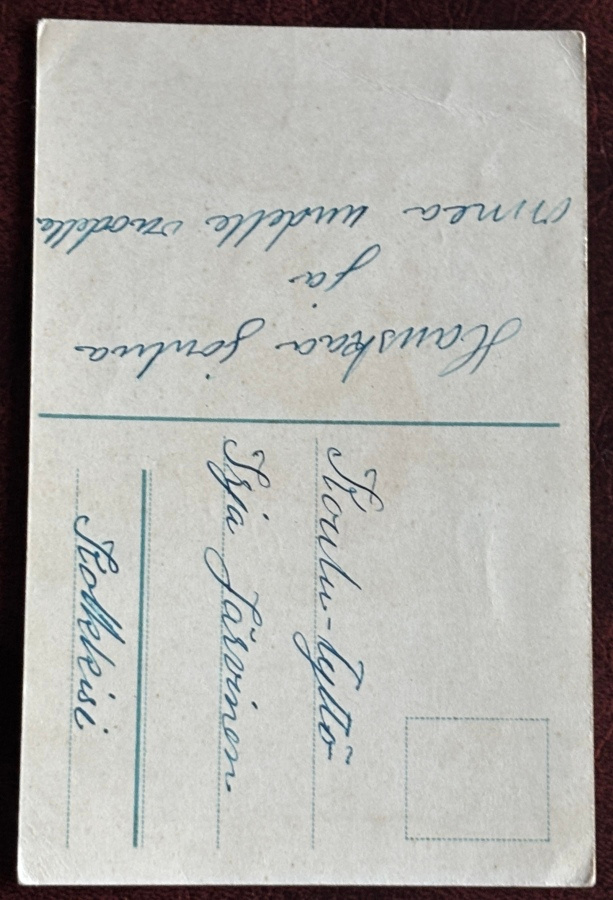 Hauskaa joulua
ja
onnea uudelle vuodelle
Koulu-tyttö
Irja Järvinen